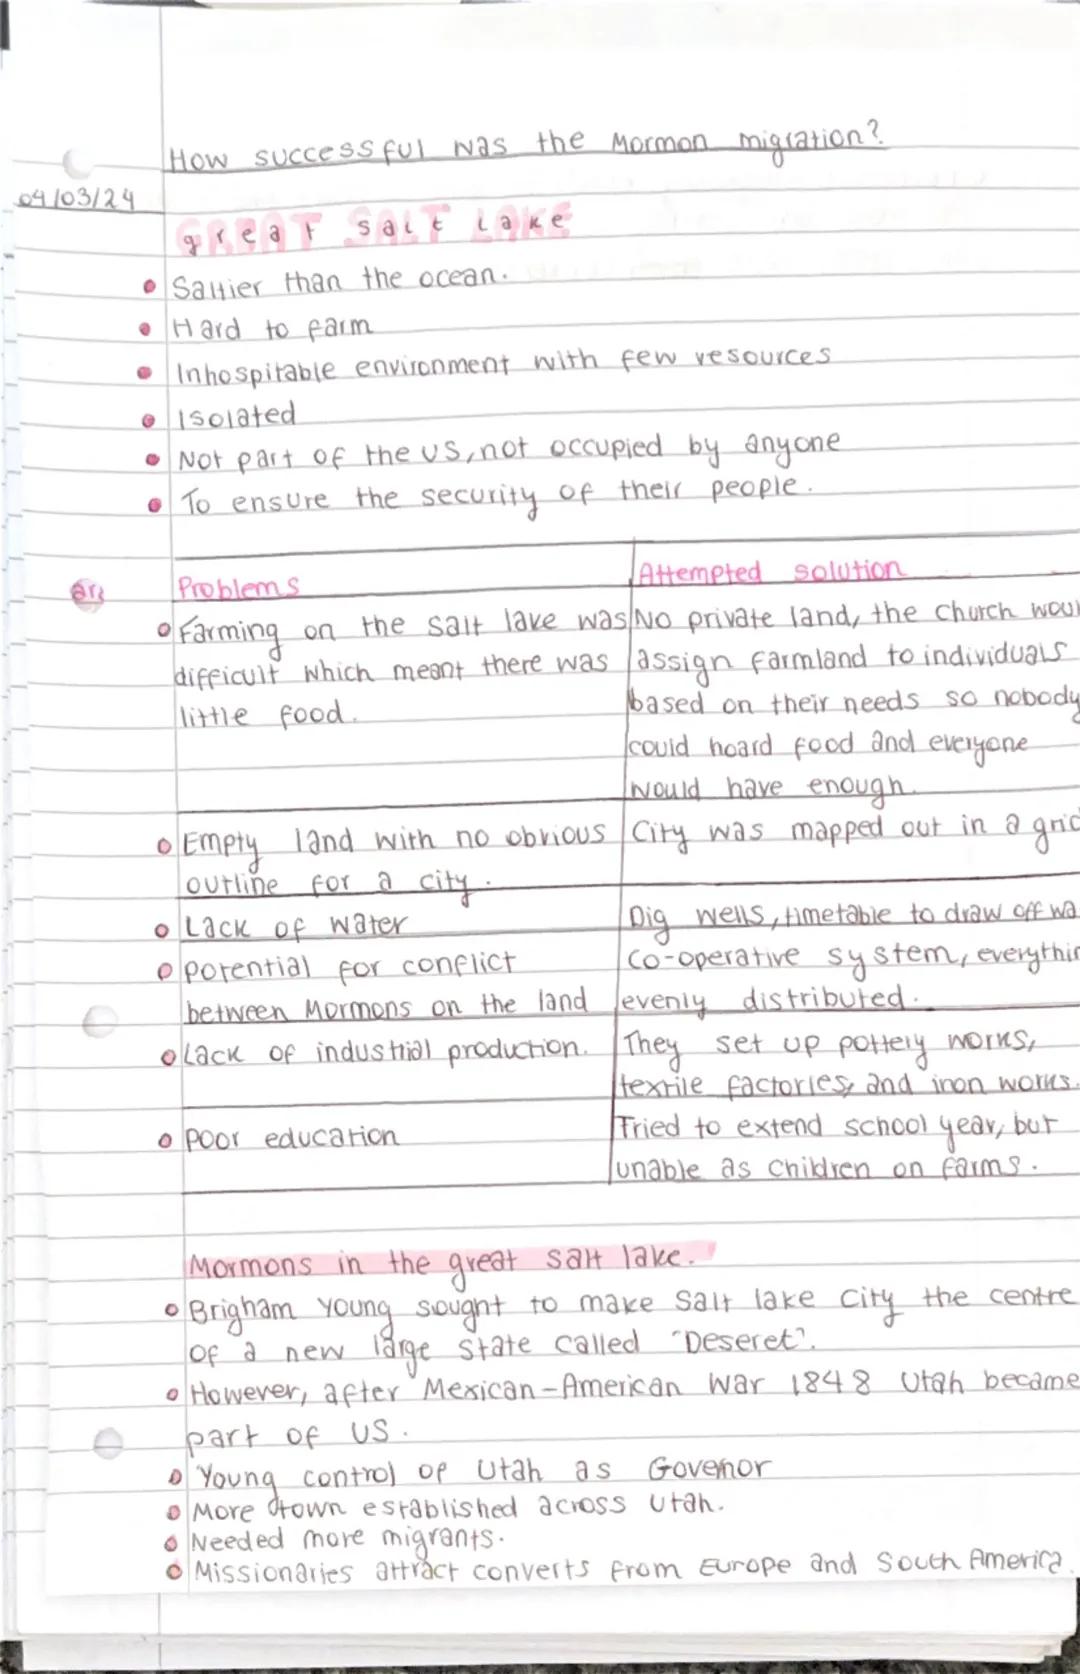 How successful was the Mormon migration?
04/03/24
great salt lake
Saltier than the ocean.
Hard to farm
Inhospitable environment with few resources
Isolated
Not part of the US, not occupied by anyone
To ensure the security of their people.
Problems
Attempted solution
Farming on the salt lake was
difficult which meant there was
little food.
No private land, the church woul
assign farmland to individuals
based on their needs so nobody
could hoard food and everyone
would have enough.
Empty land with no obvious
outline for a city.
City was mapped out in a grid
Lack of water
Dig wells, timetable to draw off wa
potential for conflict
between Mormons on the land
co-operative system, everythin
evenly distributed.
Lack of industrial production.
They set up pottery works,
textile factories, and iron works.
poor education
Tried to extend school year, but
unable as children on farms.
Mormons in the great salt lake.
Brigham Young sought to make Salt lake City the centre
of a new large state called "Deseret".
However, after Mexican-American War 1848 Utah became
part of US.
Young control of Utah as Governor
More town established across Utah.
Needed more migrants.
Missionaries attract converts from Europe and South America.